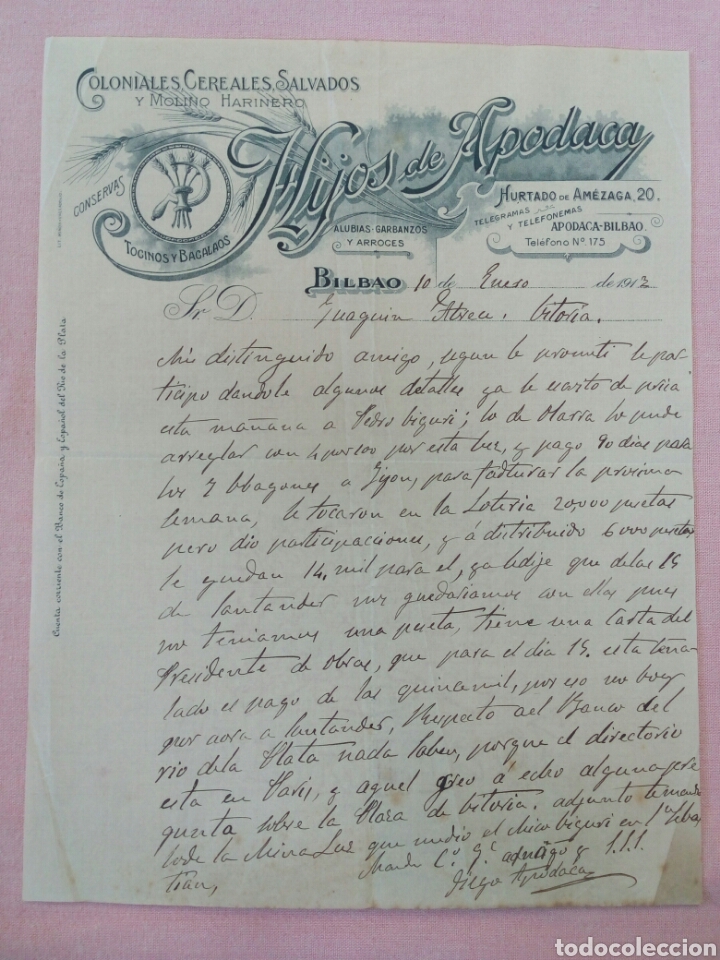 Coloniales, Cereales, Salvados
y Molino Harinero
Hijos de Apodaca
Conservas
Tocinos y Bacalaos
Alubias-Garbanzos
y Arroces
Hurtado de Amézaga, 20.
Telegramas
y Telefonemas
Apodaca-Bilbao
Teléfono Nº 175
Bilbao 10 de Enero de 1913
Sr. D. Juaquin Abreu. Vitoria.
Cuenta corriente con el Banco de España y Español del Rio de la Plata
Mi distinguido amigo, segun le prometi le par
ticipo dandole algunos detalles ya le de prisa
esta mañana a Pedro Viguri; lo de Olarra lo puede
arreglar con 4 por 100 por esta vez, y pago 90 dias para
los 7 Wagones a Gijon, para facturar la proxima
semana, le tocaron en la Loteria 20,000 pesetas
pero dio participaciones, y á distribuido 6000 pesetas
le quedan 14. mil para el, ya le dije que de las 15
de Santander nos quedariamos con ellas pues
no teniamos una peseta, tiene una Carta del
Presidente de Obras, que para el dia 15. esta seña
lado el pago de las quince mil, por eso no boy
por aora a Santander, Respecto al Banco del
rio de la Plata nada saben, porque el directorio
esta en Paris, y aquel creo á echo alguna pre
gunta sobre la Plaza de Vitoria. adjunto le mando
lo de la Mina Luz que me dio el chico Viguri en Sn Sebas
tian,
Mande Co. qe. amigo y S.S.S.
Diego Apodaca
todocoleccion